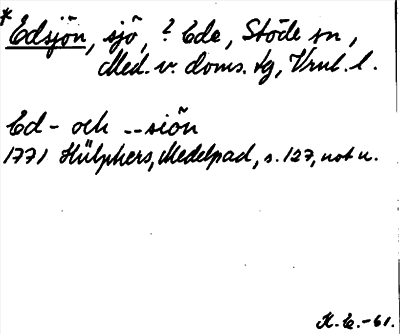 *Edsjön, sjö, ? Ede, Stöde sn,
Med. v. doms. tg, Vrnl. l.
Ed- och --siön
1771 Hülphers, Medelpad, s. 127, not u.
K. E. -61.